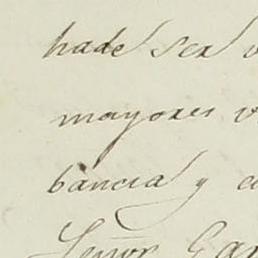 hade ser
mayores
bancia y
Señor